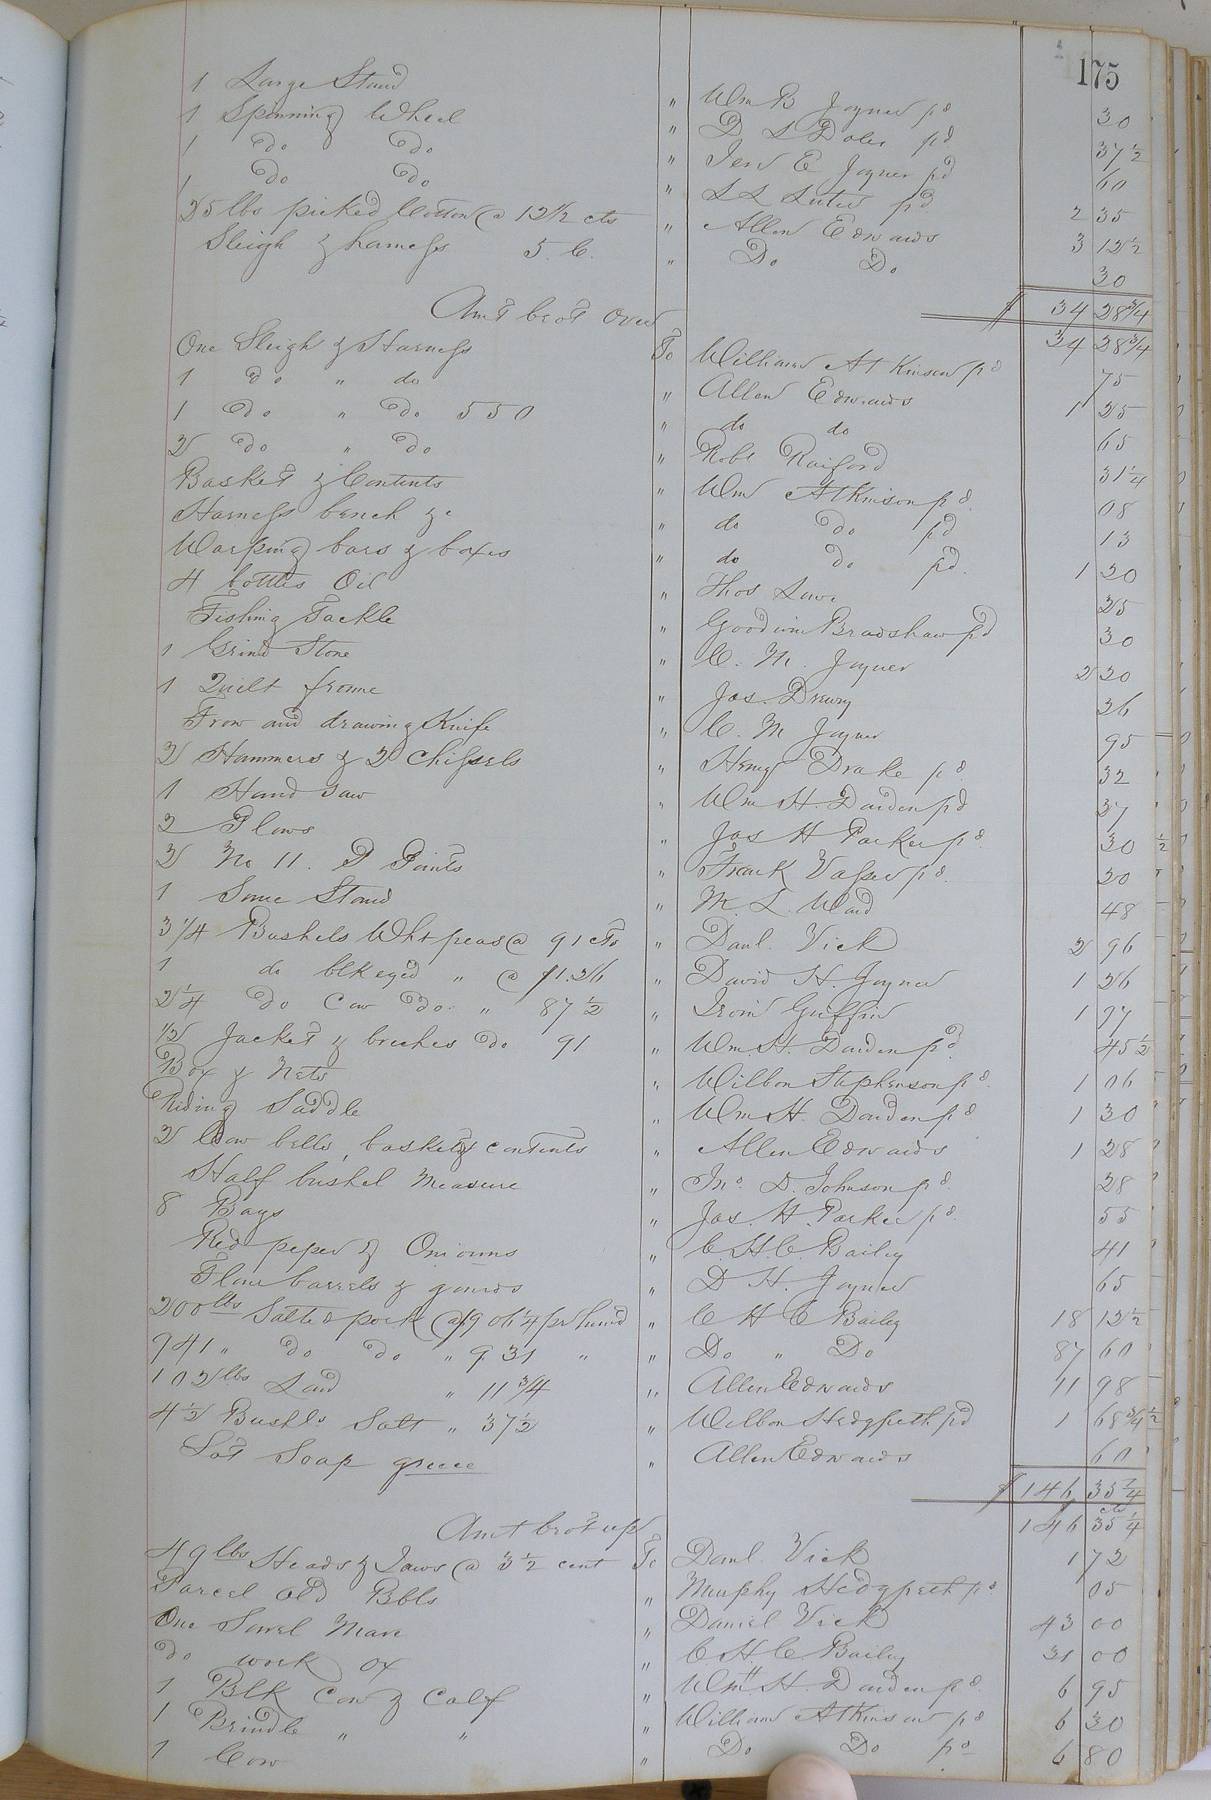 175
1 Large Stand " Wm B Joyner pd 30
1 Spinning Wheel " D. L Doles pd 37 1/2
1 Do Do " Jer E Joyner pd 60
1 Do Do " L L pd 2 35
25 lbs picked Cotton @ 12 1/2 cts " Allen Edwards 3 12 1/2
Sleigh & harness 5. C. " Do Do 30
$ 34 28 3/4
Amt brot Over 34 28 3/4
One Sleigh & Harness To William Atkinson pd 75
1 do " do " Allen Edwards 1 25
1 Do " Do 550 " do do 65
2 Do " Do " Robt Raiford 31 1/4
Basket & Contents " Wm Atkinson pd. 08
Harness bench &c " do Do pd 13
Warping bars & boxes " do Do pd. 1 20
4 bottles Oil " Thos 25
Fishing Tackle " Goodwin Bradshaw pd 30
1 Grind Stone " C. M. Joyner 2 20
1 Quilt frame " Jas. Drewry 36
Frow and drawing Knife " C. M Joyner 95
2 Hammers & 2 Chissels " Henry Drake pd 32
1 Hand Saw " Wm H. Darden pd 37
2 Plows " Jas H Parker pd. 30 1/2
2 No 11. P Points " Frank Vasser pd. 20
1 Some Stand " M. L. Ward 48
3 1/4 Bushels Wht peas @ 91 cts " Danl. Vick 2 96
1 do blk eyed " @ $1.26 " David H. Joyner 1 26
2 1/4 Do Cow Do. " 87 1/2 " Irvin Griffin 1 97
1/2 Jacket & breches Do 91 " Wm. H. Darden pd. 45 1/2
Box & Nets " Wilbon Stephenson pd. 1 06
Riding Saddle " Wm H. Darden pd 1 30
2 Cow bells, basket & contents " Allen Edwards 1 28
Half bushel Measure " Jno. D. Johnson pd. 28
8 Bags " Jas. H. Parker pd. 55
Red peper & Oniouns " C. H. C. Bailey 41
Flour barrels & gourds " D H. Joyner 65
200 lbs Salted pork @ $9 06 1/4 pr hund " C H C Bailey 18 12 1/2
941 " Do Do " 9 31 " " Do " Do 87 60
102 lbs Lard " 11 3/4 " Allen Edwards 11 98
4 1/2 Bushls Salt " 37 1/2 " Wilbon Hedgpeth pd 1 68 3/4 1/2
Lot Soap greece " Allen Edwards 60
$ 146 35 1/4
Amt brot up 146 35 1/4 cts
49 lbs Heads & Jaws @ 3 1/2 cent To Danl. Vick 1 72
Parcel Old Bbls " Murphy Hedgpeth pd 05
One Sorrel Mare " Daniel Vick 43 00
Do work Ox " C H C Bailey 31 00
1 Blk Cow & Calf " Wm H. Darden pd. 6 95
1 Brindle " " " William Atkinson pd 6 30
1 Cow " Do Do pd 6 80